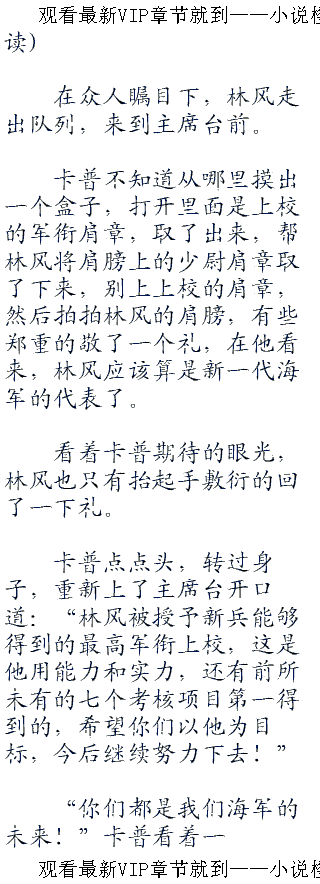 观看最新VIP章节就到——小说
读）
在众人瞩目下，林风走
出队列，来到主席台前。
卡普不知道从哪里摸出
一个盒子，打开里面是上校
的军衔肩章，取了出来，帮
林风将肩膀上的少尉肩章取
了下来，别上上校的肩章，
然后拍拍林风的肩膀，有些
郑重的敬了一个礼，在他看
来，林风应该算是新一代海
军的代表了。
看着卡普期待的眼光，
林风也只有抬起手敷衍的回
了一下礼。
卡普点点头，转过身
子，重新上了主席台开口
道：“林风被授予新兵能够
得到的最高军衔上校，这是
他用能力和实力，还有前所
未有的七个考核项目第一得
到的，希望你们以他为目
标，今后继续努力下去！”
“你们都是我们海军的
未来！”卡普看着一
观看最新VIP章节就到——小说